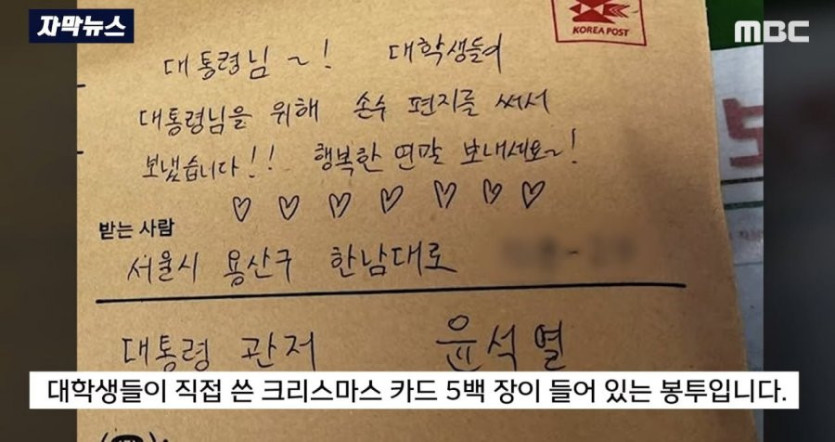 자막뉴스
MBC
KOREA POST
대통령님~! 대학생들이
대통령님을 위해 손수 편지를 써서
보냈습니다!! 행복한 연말 보내세요~!
♡ ♡ ♡ ♡ ♡ ♡ ♡
받는 사람
서울시 용산구 한남대로
대통령 관저 윤석열
대학생들이 직접 쓴 크리스마스 카드 5백 장이 들어 있는 봉투입니다.